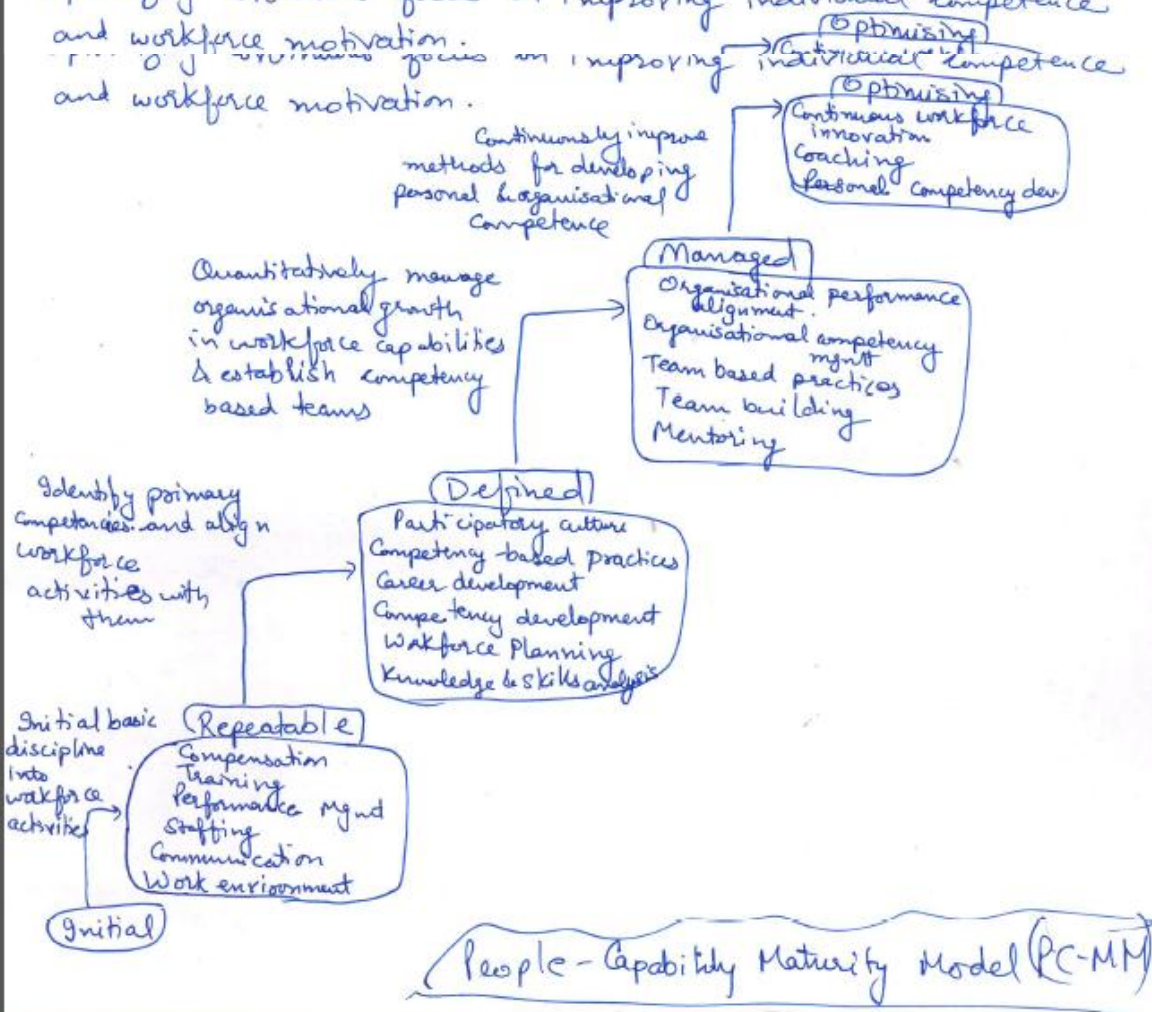 improving individual competence
and workforce motivation.
Optimising
focus on improving individual competence
and workforce motivation.
Optimising
Continuous workforce
innovation
Coaching
Personal Competency dev
Continuously improve
methods for developing
personal & organisational
Competence
Managed
Organisational performance
alignment.
Organisational competency
mgntt
Team based practices
Team building
Mentoring
Quantitatively manage
organisational growth
in workforce capabilities
& establish competency
based teams
Defined
Participatory culture
Competency based practices
Career development
Competency development
Workforce Planning
Knowledge & Skills analysis
Identify primary
Competencies and align
workforce
activities with
them
Repeatable
Compensation
Training
Performance Mgnd
Staffing
Communication
Work envioonment
Initial basic
discipline
into
workforce
activities
Initial
People-Capability Maturity Model (PC-MM)